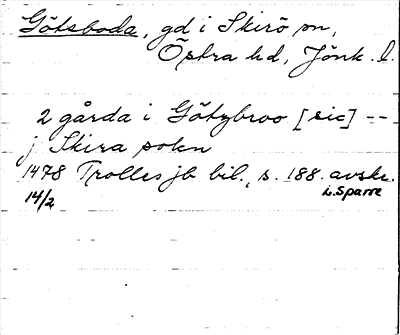 Götsboda, gd i Skirö sn,
Östra hd, Jönk. l.
2 gårda i Götzbroo [sic] --
j Skira sokn
1478 Trolles jb bil., s. 188. avskr.
14/2 L. Sparre